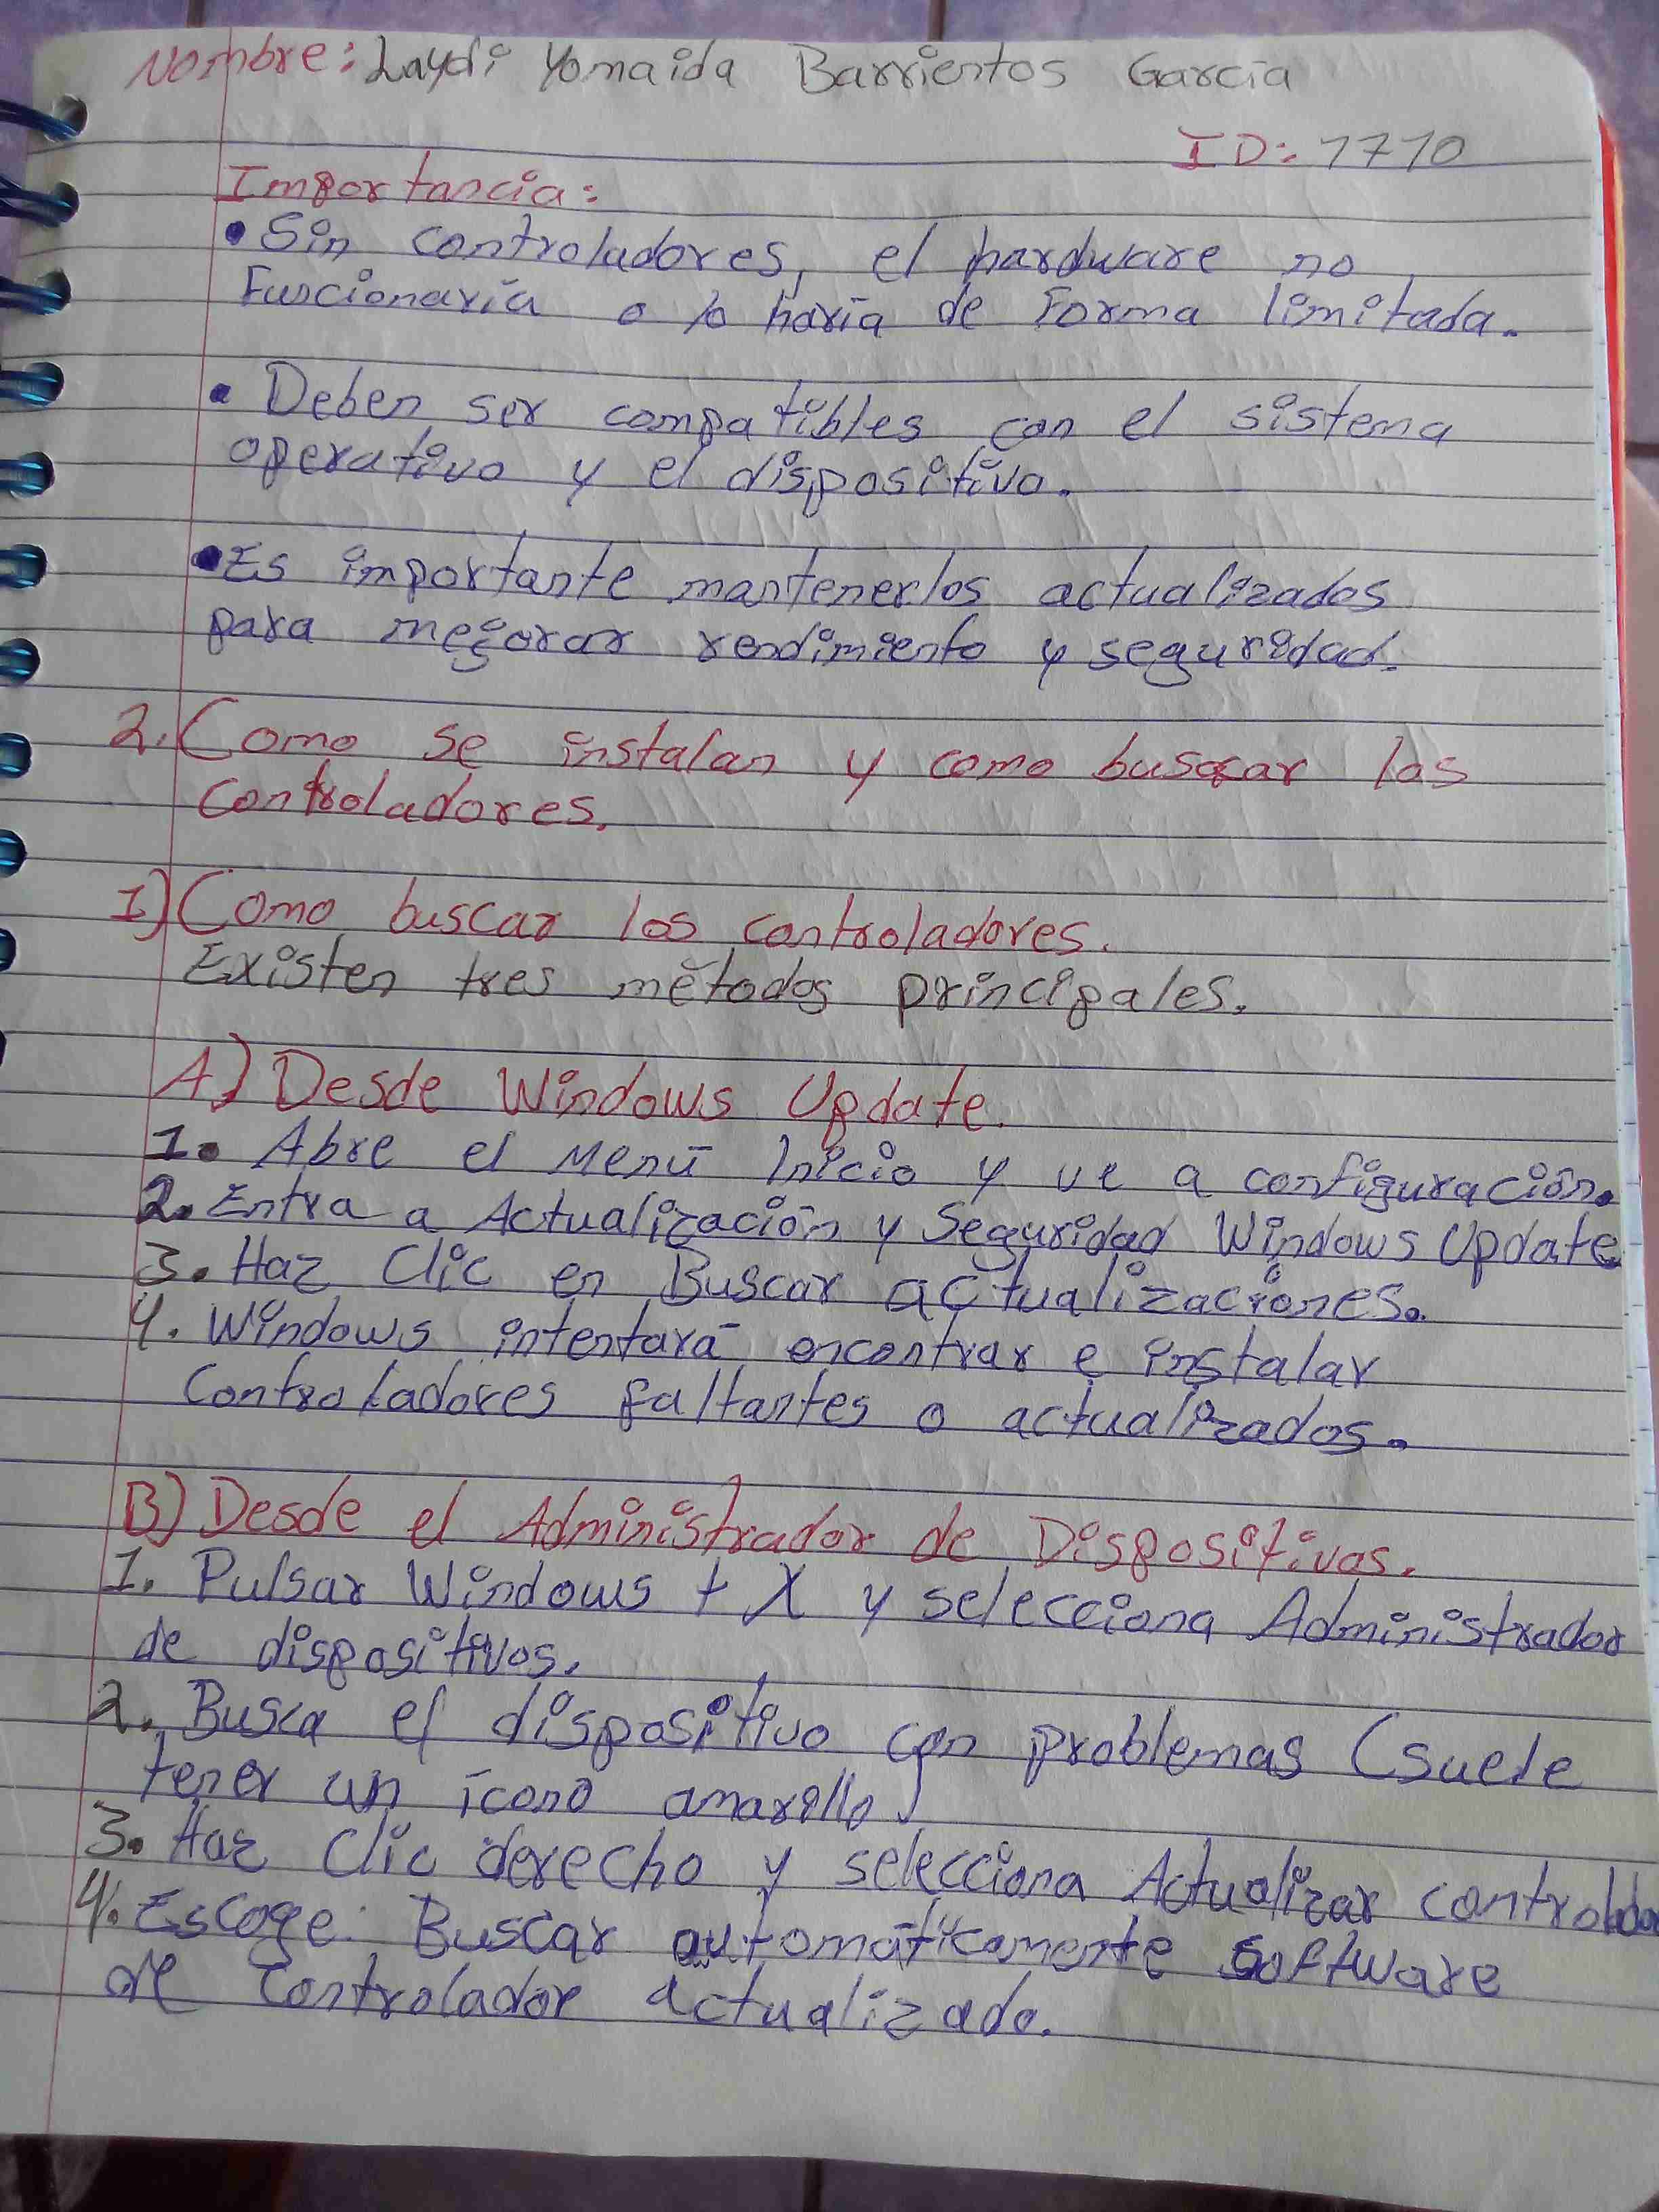 Nombre: Laydi Yomaida Barrientos García
ID: 1710
Importancia:
• Sin controladores, el hardware no
Funcionaría o lo haría de Forma limitada.
• Deben ser compatibles con el sistema
operativo y el dispositivo.
• Es importante mantenerlos actualizados
para mejorar rendimiento y seguridad.
2. Como se instalan y como buscar los
Controladores.
I) Como buscar los controladores.
Existen tres métodos principales.
A) Desde Windows Update.
1. Abre el Menú Inicio y ve a configuración.
2. Entra a Actualización y Seguridad Windows Update
3. Haz Clic en Buscar actualizaciones.
4. Windows intentará encontrar e instalar
Controladores faltantes o actualizados.
B) Desde el Administrador de Dispositivos.
1. Pulsar Windows + X y selecciona Administrador
de dispositivos.
2. Busca el dispositivo con problemas (suele
tener un ícono amarillo)
3. Haz Clic derecho y selecciona Actualizar controlador
4. Escoge: Buscar automáticamente software
de controlador actualizado.